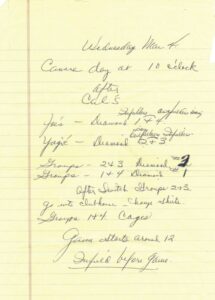 Wednesday Mar 4
Camera day at 10 o'clock
after
Cal S
Joe's - Diamond 1 + 4
Yogi's - Diamond 2 + 3
Groups - 2 + 3 Diamond 2
Groups - 1 + 4 Diamond 1
After Switch Groups 2 + 3
go into clubhouse - change shirts.
Groups 1 + 4 Cages
Game starts around 12
Infield before game.